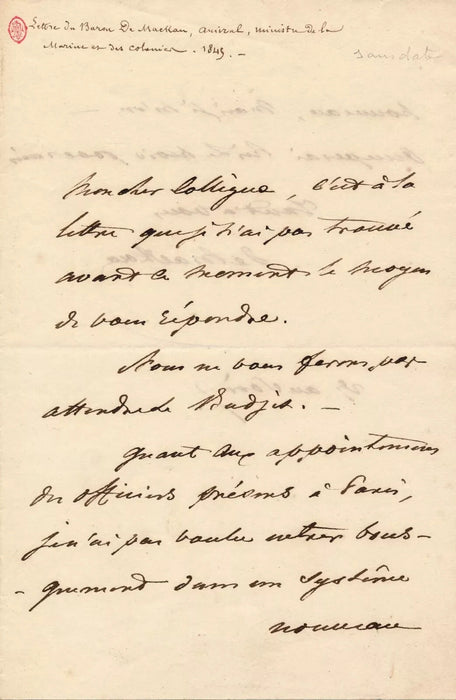 Lettre du Baron De Mackau, amiral, ministre de la
Marine et des colonies. 1845. -
sans date
Mon cher Collègue, C'est à la
lettre que je n'ai pas trouvé
avant ce moment le moyen
de vous répondre.
Nous ne vous ferons pas
attendre le Budjet. -
quant aux appointemens
des officiers présens à Paris,
je n'ai pas voulu entrer brus-
- quement dans un système
nouveau